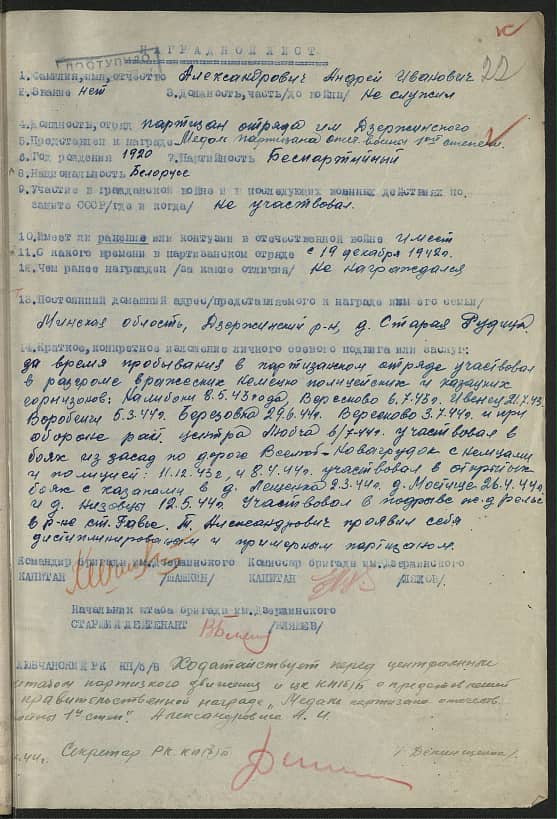 22
ПОСТУПИЛО
НАГРАДНОЙ ЛИСТ
1. Фамилия, имя, отчество Александрович Андрей Иванович
2. Звание нет 3. Должность, часть /до войны/ Не служил
4. Должность, отряд партизан отряда им Дзержинского
5. Представлен к награде Медаль партизана отеч. войны 1ой степени
6. Год рождения 1920 7. Партийность Беспартийный
8. Национальность Белорус
9. Участие в гражданской войне и в последующих военных действиях по
защите СССР /где и когда/ Не участвовал.
10. Имеет ли ранение или контузии в отечественной войне Имеет
11. С какого времени в партизанском отряде с 19 декабря 1942г.
12. Чем ранее награжден /за какие отличия/ Не награждался
13. Постоянный домашний адрес /представляемого к награде или его семьи/
Минская область, Дзержинский р-н, д. Старая Рудица.
14. Краткое, конкретное изложение личного боевого подвига или заслуг:
за время пребывания в партизанском отряде участвовал
в разгроме вражеских немецко полицейских и казацких
гарнизонов: Налибоки 8.5.43 года, Вересково 6.7.43г. Ивенец 21.7.43.
5.3.44г. Березовка 29.6.44г. Вересково 3.7.44г. и при
обороне рай. центра Любча 6/7-44г. участвовал в
боях из засад по дороге Новагрудок с немцами
и полицией: 11.12.43г, и 8.4.44г. участвовал в открытых
боях с казаками в д. Лещенка 2.3.44г. д. Мостище 26.4.44г.
и д. Низовцы 12.5.44г. Участвовал в подрыве ж.д рельс
в р-не ст. Гавье. Т. Александрович проявил себя
дисциплинированым и примерным партизаном.
Командир бригады им. Дзержинского Комиссар бригады им. Дзержинского
КАПИТАН /ШАШКИН/ КАПИТАН /ЛЯХОВ/.
Начальник штаба бригады им. Дзержинского
СТАРШИЙ ЛЕЙТЕНАНТ /БЛЯЕВ/
ЛЮБЧАНСКИЙ РК КП/б/Б Ходатайствует перед центральным
штабом партизкого движения и ЦК КП(б)Б о представлении
правительственной награде „Медаль партизана отечеств.
1й степ". Александровича А. И.
Секретарь РК КП(б)Б